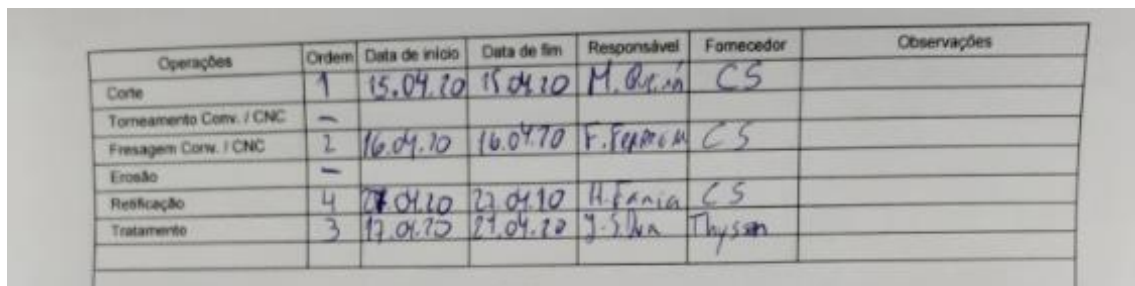 Operações Ordem Data de início Data de fim Responsável Fornecedor Observações
Corte 1 15.04.20 15.04.20 M. CS
Torneamento Conv. / CNC -
Fresagem Conv. / CNC 2 16.04.20 16.04.20 F. CS
Erosão -
Retificação 4 27.04.20 27.04.20 H. Faria CS
Tratamento 3 17.04.20 J. Silva Thyssen